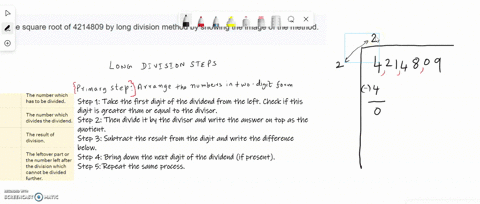 e square root of 4214809 by long division method by showing the image of the method.
LONG DIVISION STEPS
[Primary step:] Arrange the numbers in two-digit form
The number which has to be divided.
The number which divides the dividend.
The result of division.
The leftover part or the number left after the division which cannot be divided further.
Step 1: Take the first digit of the dividend from the left. Check if this digit is greater than or equal to the divisor.
Step 2: Then divide it by the divisor and write the answer on top as the quotient.
Step 3: Subtract the result from the digit and write the difference below.
Step 4: Bring down the next digit of the dividend (if present).
Step 5: Repeat the same process.
2
2
4,21,48,09
(-) 4
0
RECORDED WITH
SCREENCAST MATIC